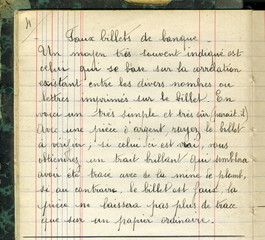 Faux billets de banque.
Un moyen très souvent indiqué est
celui qui se base sur la corrélation
existant entre les divers nombres ou
lettres imprimés sur le billet. En
voici un très simple et très sûr (paraît-il)
Avec une pièce d'argent rayez le billet
à vérifier; si celui ci est vrai, vous
obtiendrez un trait brillant qui semblera
avoir été tracé avec de la mine de plomb,
si au contraire le billet est faux la
pièce ne laissera pas plus de trace
que sur un papier ordinaire.